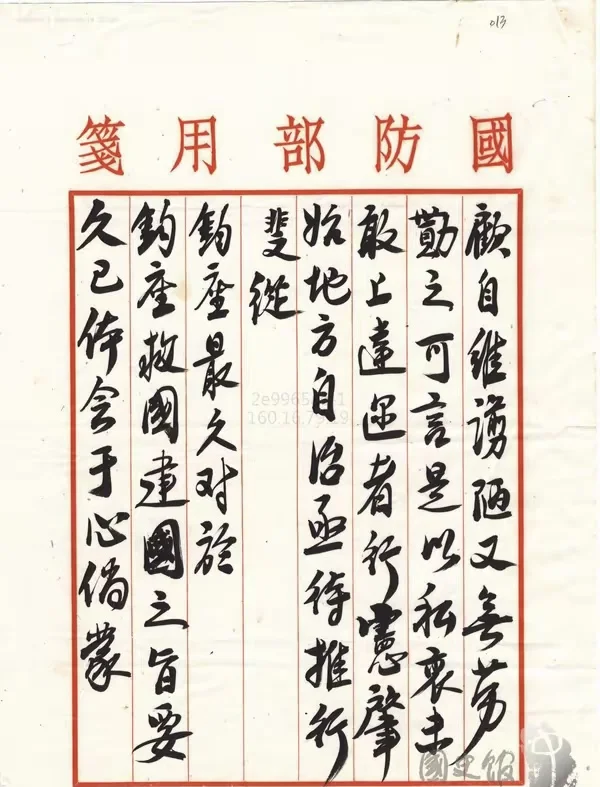 013
國防部用箋
顧自維谫陋又無勞
勩之可言是以私衷未
敢上達邇者行憲肇
始地方自治亟待推行
斐從
鈞座最久对於
鈞座救國建國之旨要
久已体会于心倘蒙
國史館